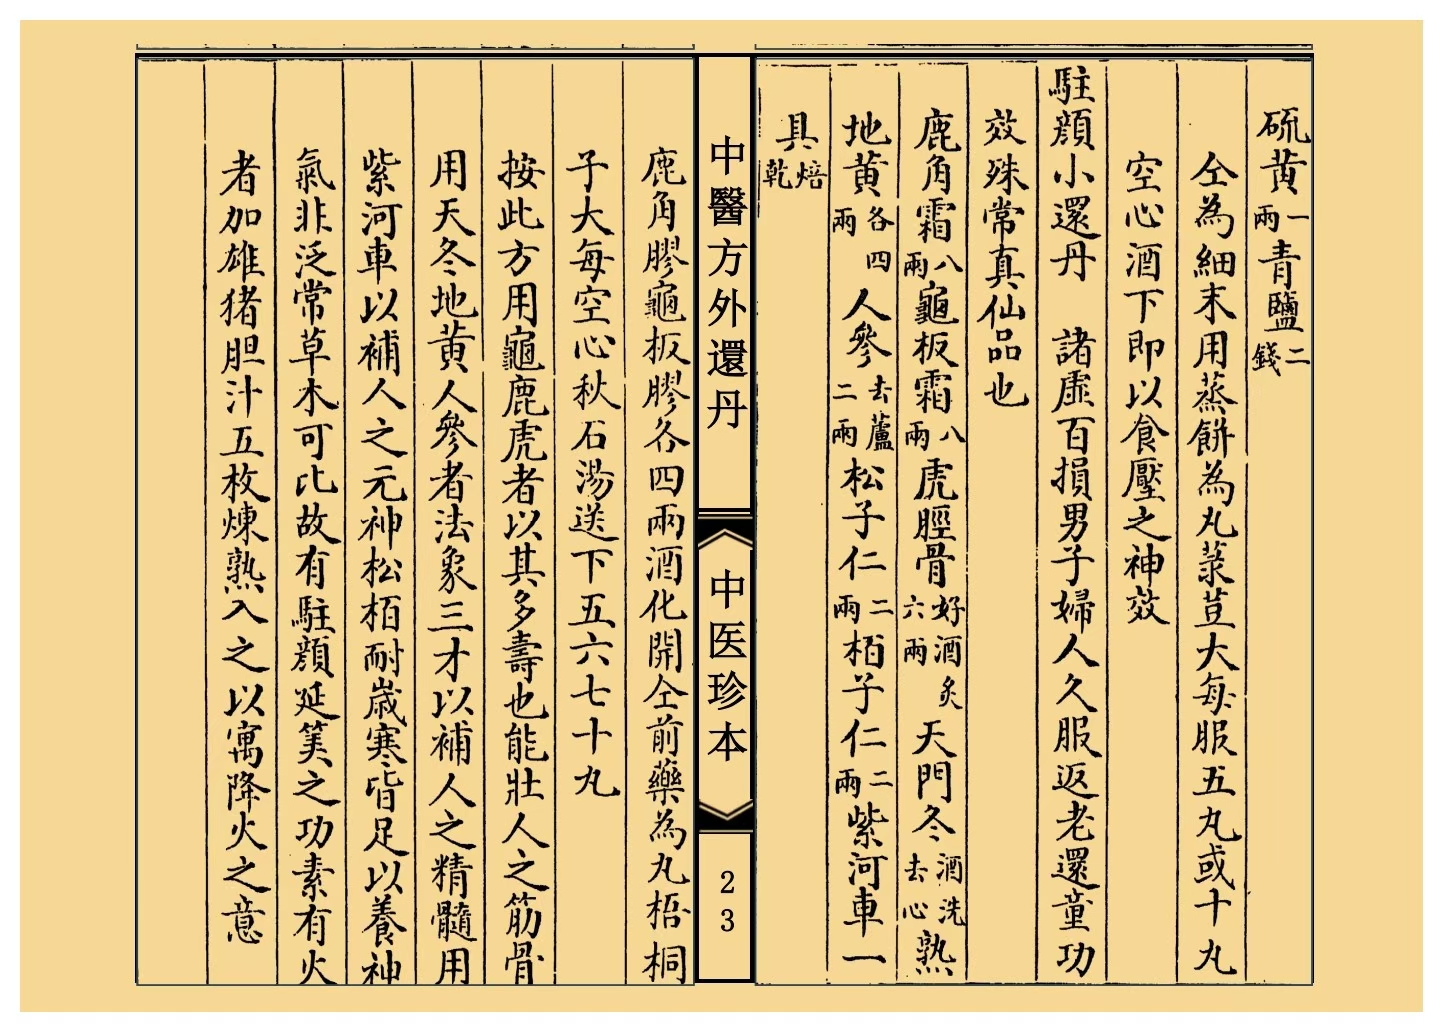 硫黄一兩青鹽二錢
仝為細末用蒸餅為丸菉荳大每服五丸或十丸
空心酒下即以食壓之神效
駐顔小還丹　諸虛百損男子婦人久服返老還童功
效殊常真仙品也
鹿角霜八兩龜板霜八兩虎脛骨好酒炙六兩天門冬酒洗去心熟
地黄各四兩人參去蘆二兩松子仁二兩栢子仁二兩紫河車一
具焙乾
中醫方外還丹
中医珍本
23
鹿角膠龜板膠各四兩酒化開仝前藥為丸梧桐
子大每空心秋石湯送下五六七十丸
按此方用龜鹿虎者以其多壽也能壯人之筋骨
用天冬地黄人參者法象三才以補人之精髓用
紫河車以補人之元神松栢耐歲寒皆足以養神
氣非泛常草木可比故有駐顔延筭之功素有火
者加雄猪胆汁五枚煉熟入之以寓降火之意